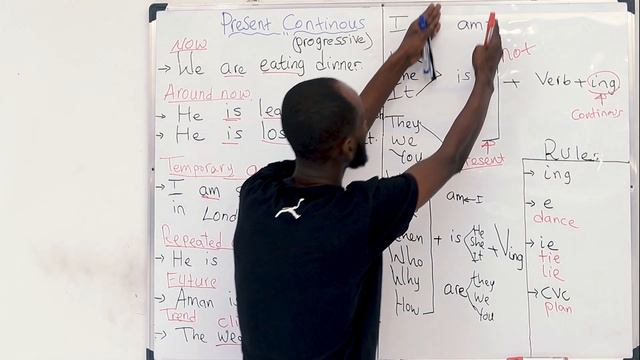 Present Continous
(progressive)
NOW
→ We are eating dinner.
Around now
→ He is
→ He is
Temporary
→ I am
in London
Repeated
→ He is
Future
→ Aman is
Trend
→ The
I
It
They
We
You
am
is
not
+ Verb + ing
Continous
Present
Who
Why
How
am ← I
+ is He She It + Ving
are they we You
Rules
→ ing
→ e
dance
→ ie
tie
lie
→ CVC
plan